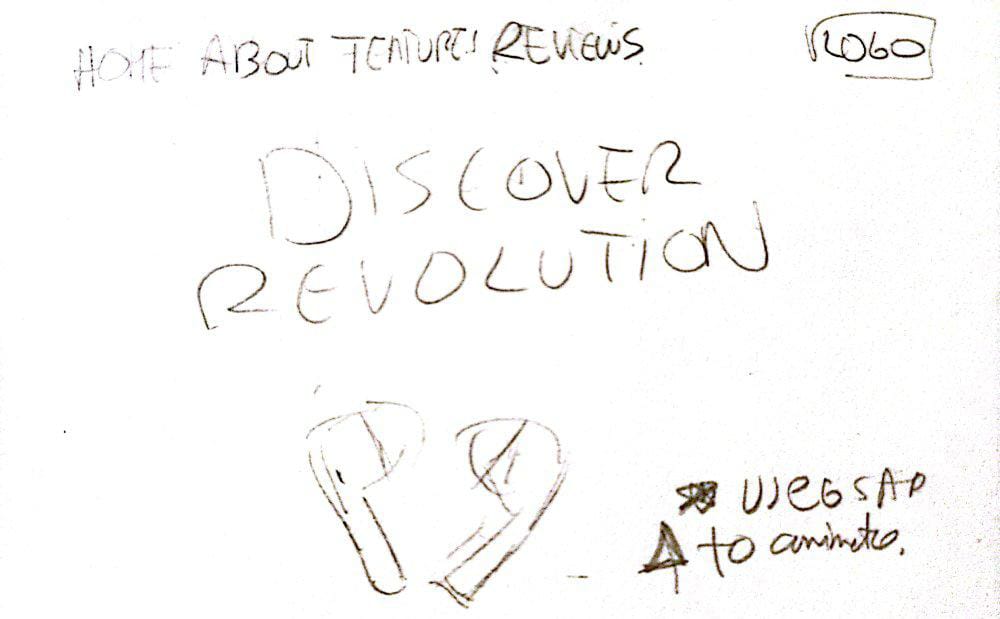 HOME ABOUT FEATURES REVIEWS
LOGO
DISCOVER
REVOLUTION
USE GSAP
to animate.